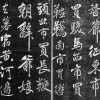 替爺征東市
買駿馬西市買
鞍韉南市買轡
頭北市買長鞭
朝辭爺孃
去暮宿黃河邊